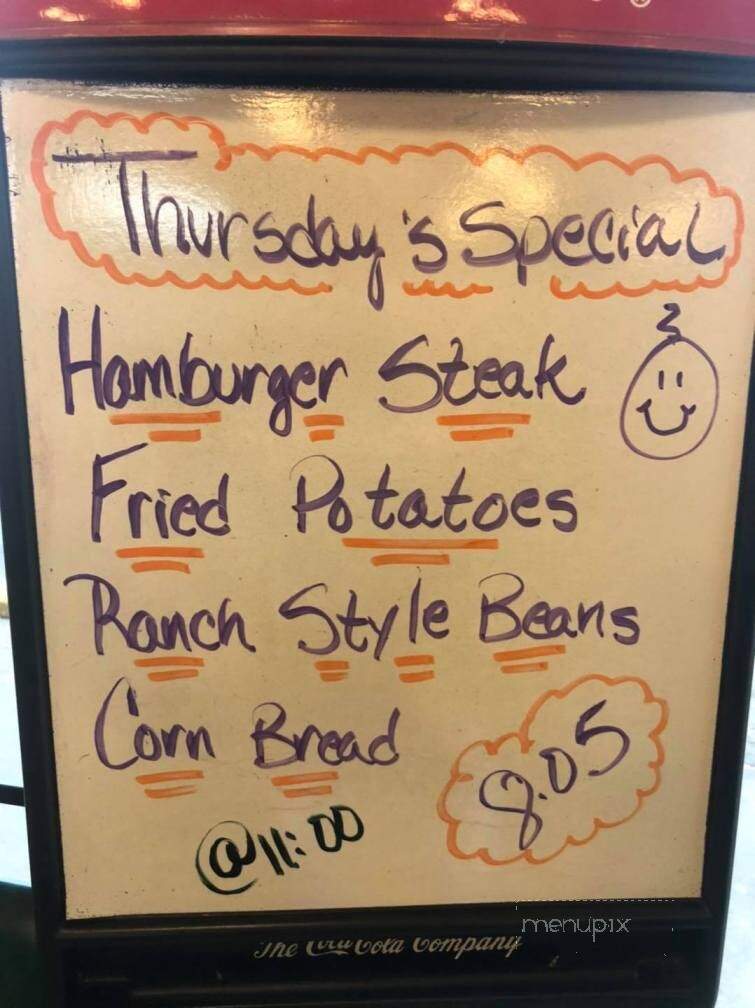 Thursday's Special
Hamburger Steak
Fried Potatoes
Ranch Style Beans
Corn Bread
8.05
@11:00
menupix
The Coca Cola Company